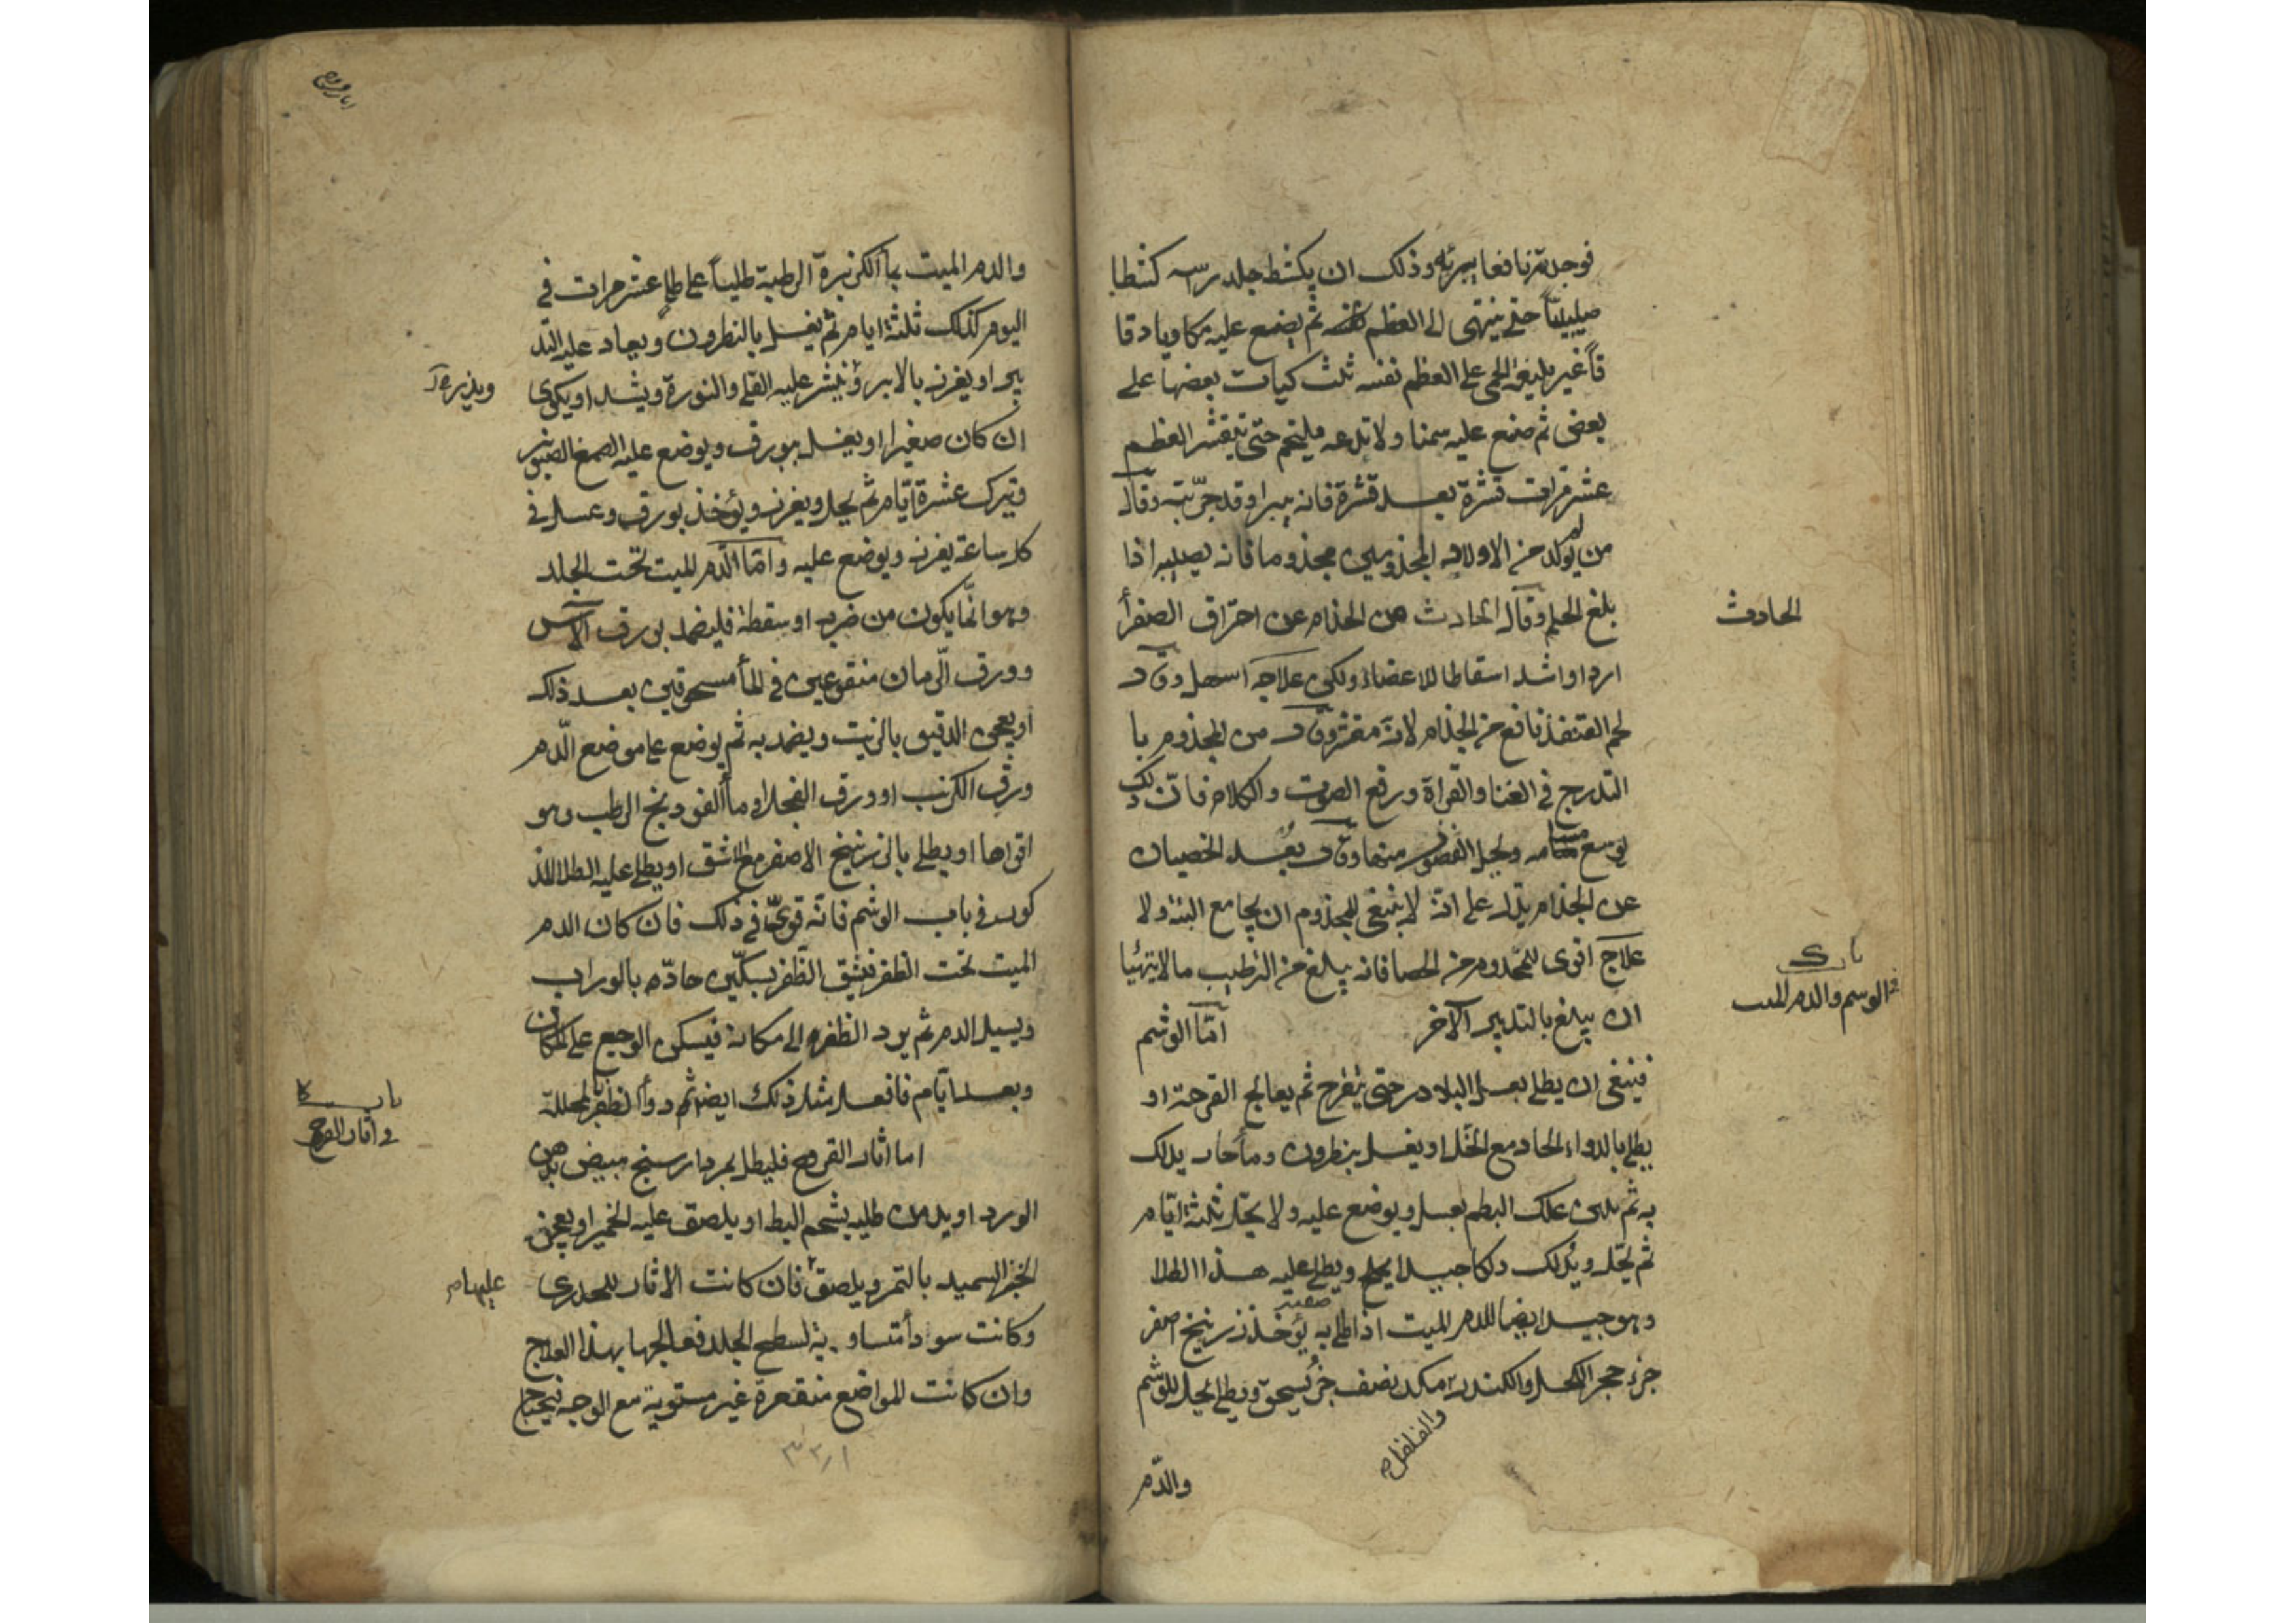 فوجدته نافعا يبرئه وذلك ان يكشط جلد رسه كشطا
صليبيّاً حتى ينتهى الى العظم ثم يضع عليه مكاويا دقا
قاً غير بليغة الحمى على العظم نفسه ثلث كيات بعضها على
بعض ثم ضع عليه سمنا ولا تدعه يلتحم حتى يتقشر العظم
عشر مرات قشرة بعد قشرة فانه يبرا وقد جرّبته وقال
من لم يولد من الاولاد المجذومين مجذوما فانه يصيبه اذا
بلغ الحلم وقال الحادث من الجذام عن احتراق الصفرأ
الحادث
اردا واشد اسقاطا للاعضاء ولكن علاجه اسهل وقال
لحم القنفذ نافع من الجذام لانه مفش وقال من المجذوم با
التدرج فى الغنا والقراة ورفع الصوت والكلام فان ذلك
يوسع مسامه ويحيل الفضول منها وقال بُعد الخصيان
عن الجذام يدل على انه لا ينبغى للمجذوم ان يجامع البتة ولا
علاج اقوى للمجذوم من الخصا فانه يبلغ من الترطيب ما لا يتهيأ
ان يبلغ بالتدبير الآخر امّا الوشم
باب ك
فى الوسم والدم الميت
فينبغى ان يطلى بعسل البلادر حتى يتقرح ثم يعالج القرحة او
يطلى بالدواء الحاد مع الخل او يغسل بنطرون وماء حار يدلك
به ثم يلين علك البطم بعسل ويوضع عليه ولا يحل ثلثة ايّام
ثم يحل ويُدلك دلكا جيدا بملح ويطلى عليه هذا الطلا
وهو جيد ايضا للدم الميت اذا طلى به صفته يؤخذ زرنيخ اصفر
جزء حجر الفلفل والكندر من كل نصف جزء يسحق ويطلى يحل للوشم
والفلفل
والدّم
والدم الميت بماء الكزبرة الرطبة طليأ على طلى عشر مرات فى
اليوم كذلك ثلثة ايام ثم يغسل بالنطرون ويعاد عليه التد
بير او يغرز بالابر وينثر عليه القلى والنورة ويشد او يكوى
ويذر
ان كان صغيرا او يغسل ببورق ويوضع عليه الصمغ الصنوبر
ويترك عشرة ايّام ثم يحل ويغرز ويؤخذ بورق وعسل فى
كل ساعة يغرز ويوضع عليه وامّا الدّم الميت تحت الجلد
وهو انّما يكون من ضربه او سقطة فليضمد بورق الآس
وورق الرّمان منقوعين فى الماء مسحوقين بعد ذلك
او يعجن الدقيق بالزيت ويضمد به ثم يوضع على موضع الدّم
ورق الكرنب او ورق الفجل او ماء الفودنج الرطب وهو
اقواها او يطلى بالزرنيخ الاصفر مع الاشق او يطلى عليه الطلا المذ
كور فى باب الوشم فانه قوىّ فى ذلك فان كان الدم
الميت تحت الظفر فيشق الظفر بسكّين حادّه بالوراب
ويسيل الدم ثم يرد الظفر الى مكانه فيسكن الوجع على المكان
وبعد ايّام فافعل مثل ذلك ايضا ثم دوأ الظفر بالمحللة
باب كا
فى آثار القروح
اما اثار القروح فليطل بمردارسنج مبيض بدهن
الورد او يدمن طليه بشحم البط او يلصق عليه الخمير او يعجن
الخبز السميد بالتمر ويلصق فان كانت الاثار للجدرى
عليها
وكانت سودأ متساوية لسطح الجلد فعالجها بهذا العلاج
وان كانت المواضع منقعرة غير مستوية مع الوجه فيحتاج
٣٣١